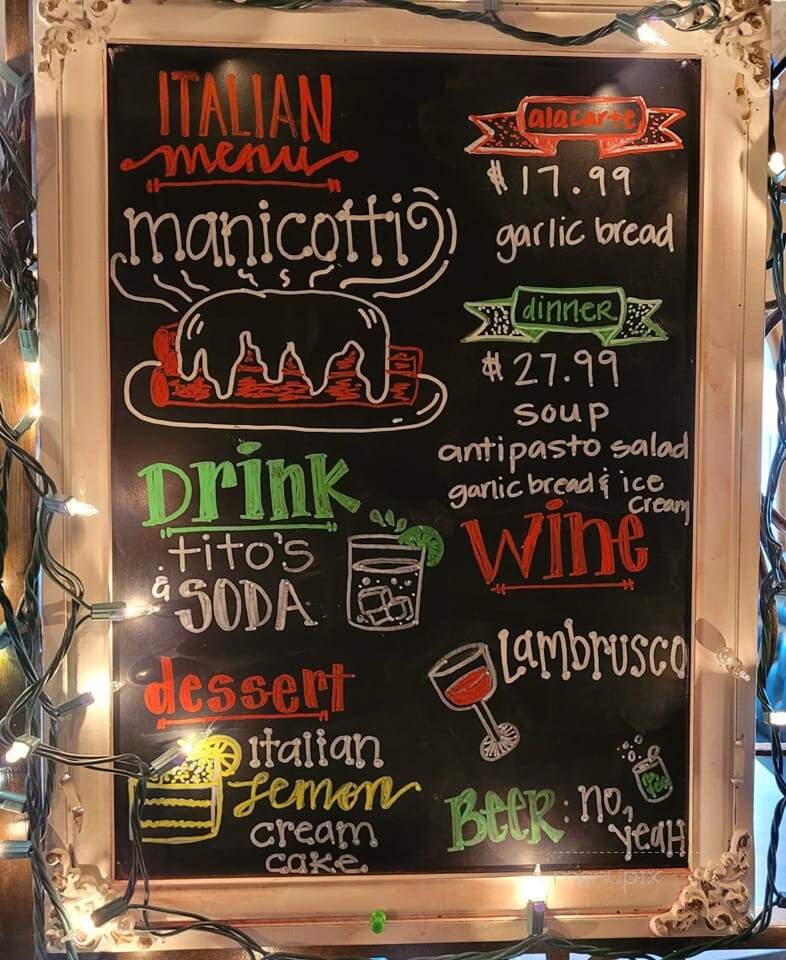 ITALIAN
menu
manicotti
alacarte
$17.99
garlic bread
dinner
$27.99
soup
antipasto salad
garlic bread & ice
cream
Drink
tito's
& SODA
wine
Lambrusco
dessert
italian
Lemon
cream
cake
BEER: no,
yeah